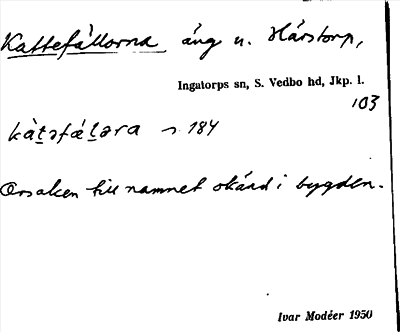 Kattefällorna äng u. Hårstorp,
Ingatorps sn, S. Vedbo hd, Jkp. l.
103
kàt̲əfǽl̲əra s. 184
Orsaken till namnet okänd i bygden.
Ivar Modéer 1950